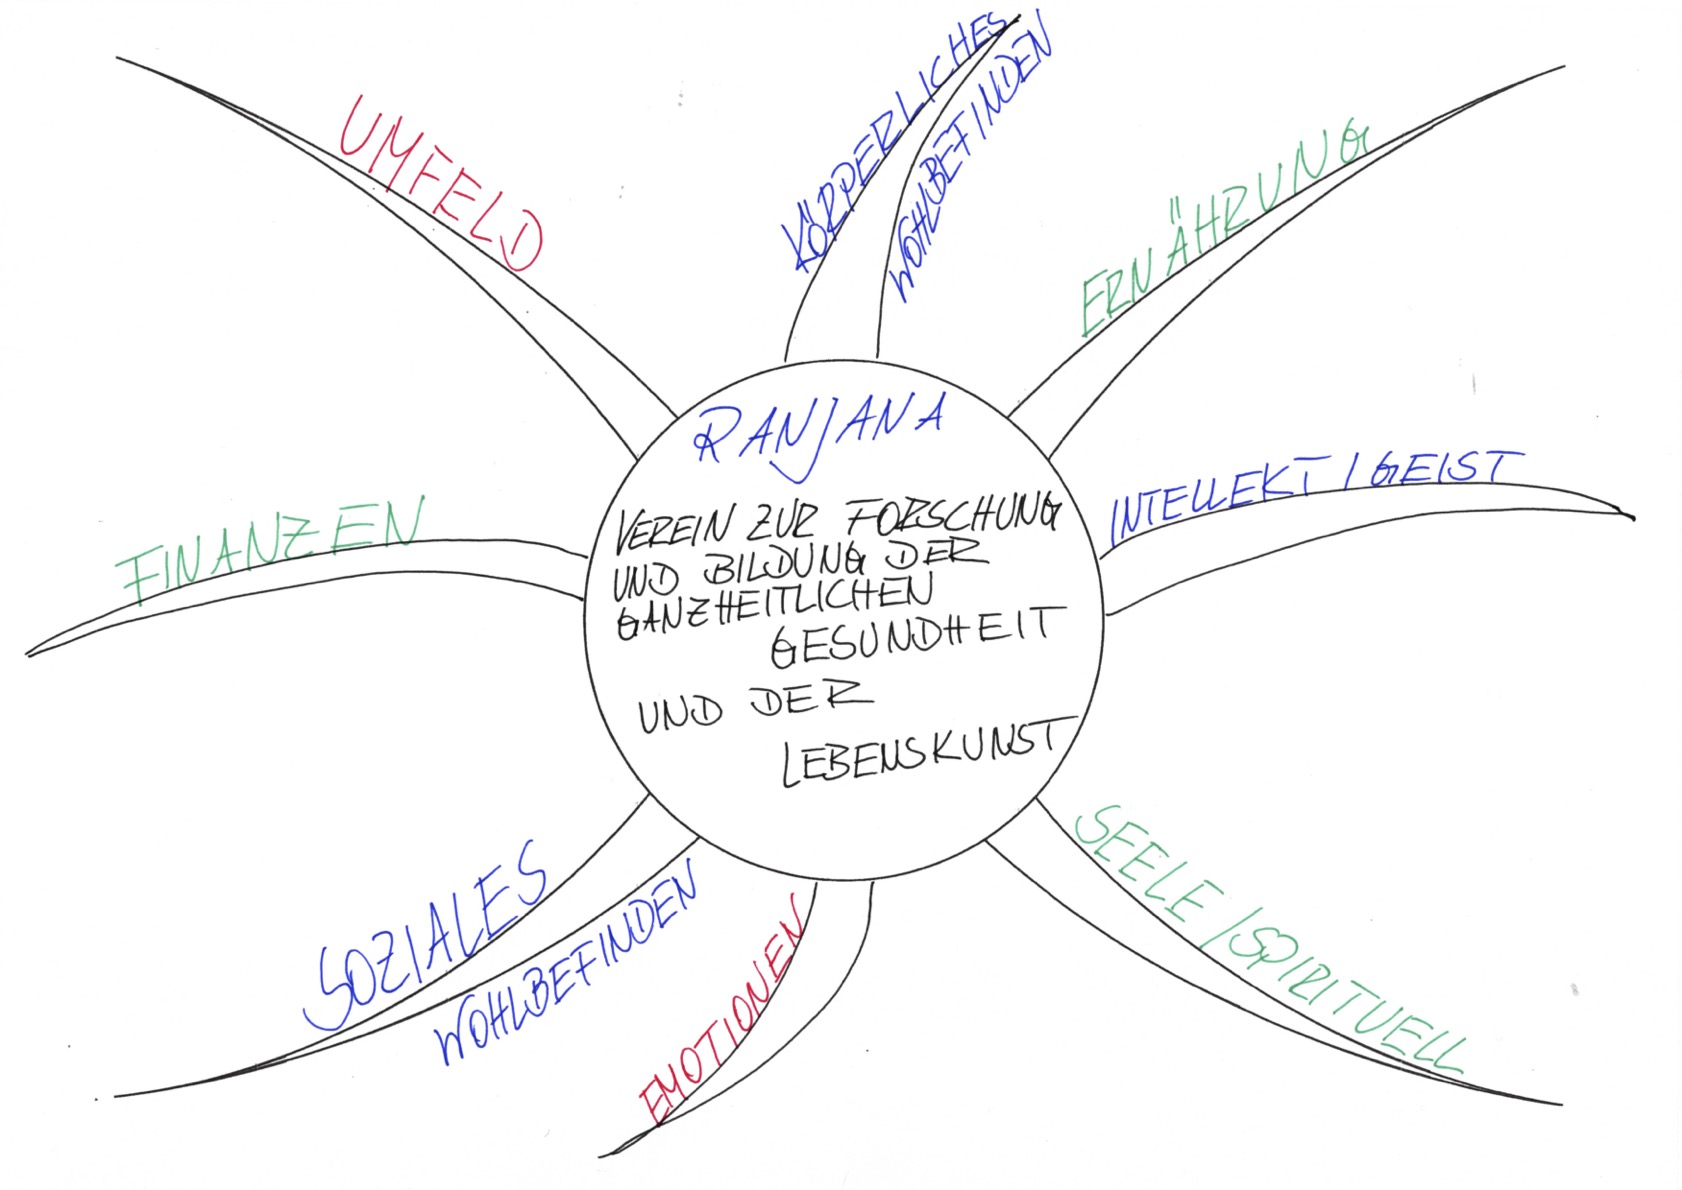 RANJANA
VEREIN ZUR FORSCHUNG
UND BILDUNG DER
GANZHEITLICHEN
GESUNDHEIT
UND DER
LEBENSKUNST
KÖRPERLICHES
WOHLBEFINDEN
ERNÄHRUNG
INTELLEKT / GEIST
SEELE / SPIRITUELL
EMOTIONEN
SOZIALES
WOHLBEFINDEN
FINANZEN
UMFELD